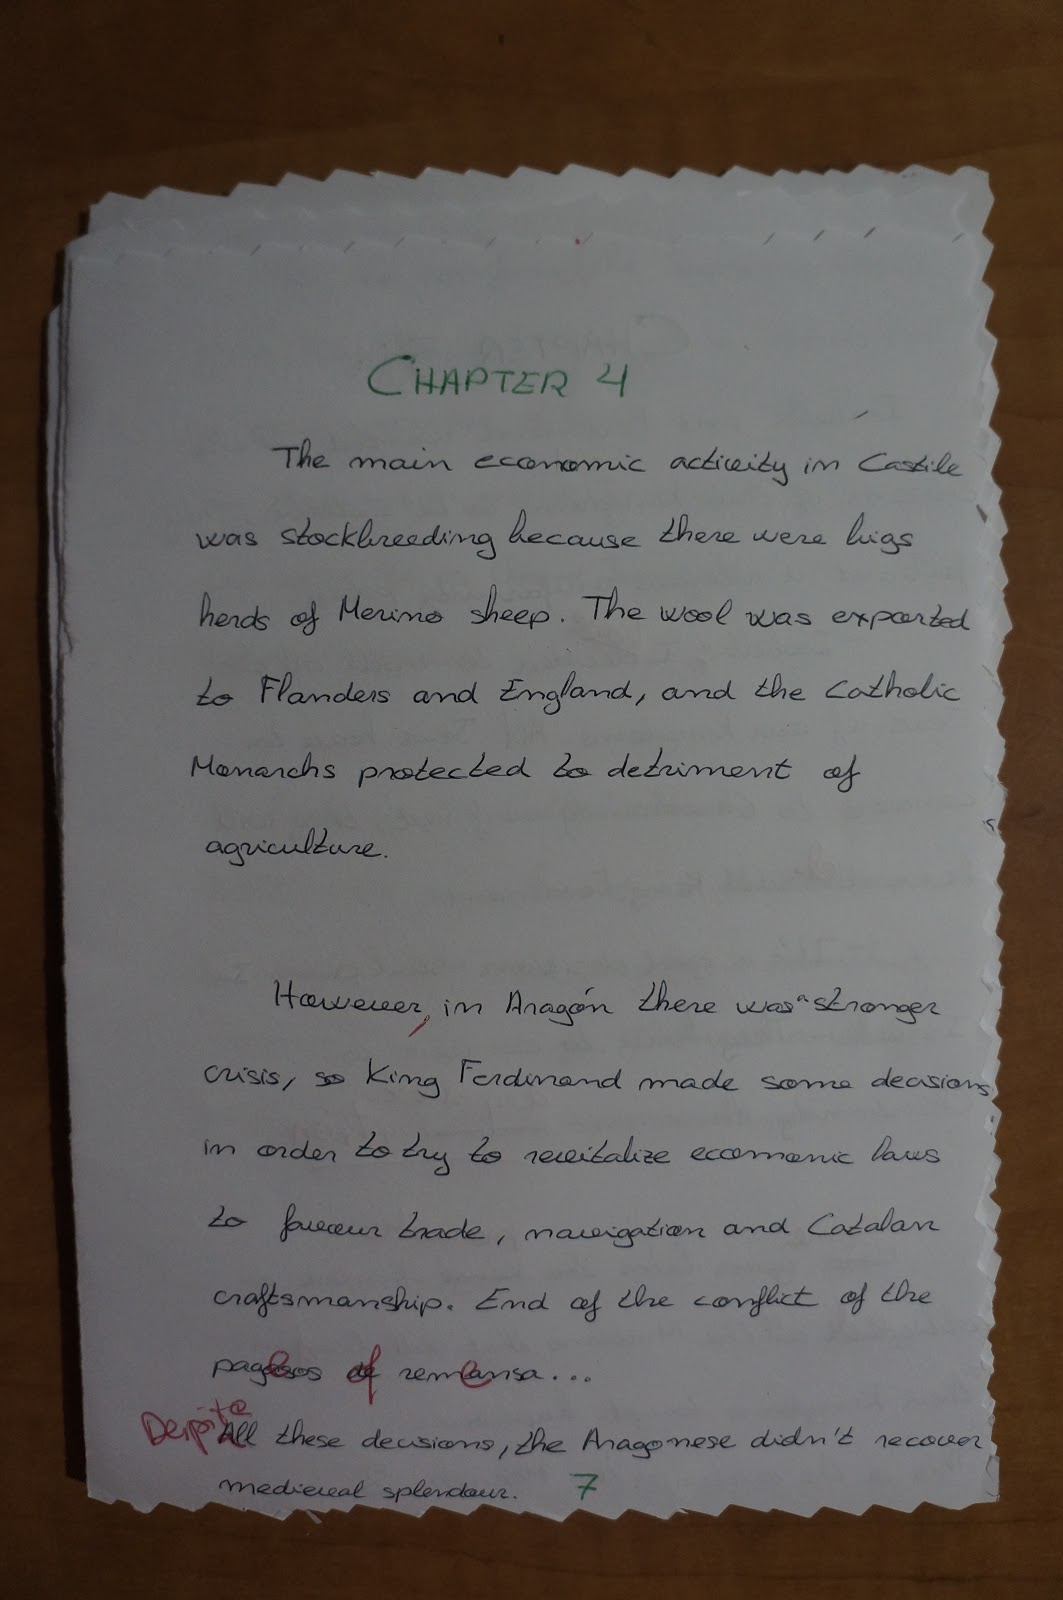 CHAPTER 4
The main economic activity in Castile
was stockbreeding because there were hugs
herds of Merino sheep. The wool was exported
to Flanders and England, and the Catholic
Monarchs protected to detriment of
agriculture.
However, in Aragón there was a stronger
crisis, so King Ferdinand made some decisions
in order to try to revitalize economic laws
to favour trade, navigation and Catalan
craftsmanship. End of the conflict of the
pageses of remensa...
Despite All these decisions, the Aragonese didn't recover
medieval splendour. 7